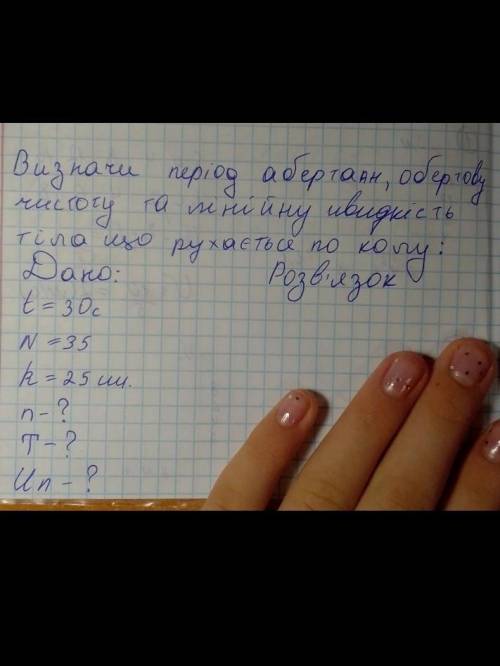 Визначи період абертанн, обертову
чистоту та лінійну швидкість
тіла що рухається по колу:
Дано: Розв'язок
t = 30с
N = 35
R = 25 см.
n - ?
T - ?
Uл - ?